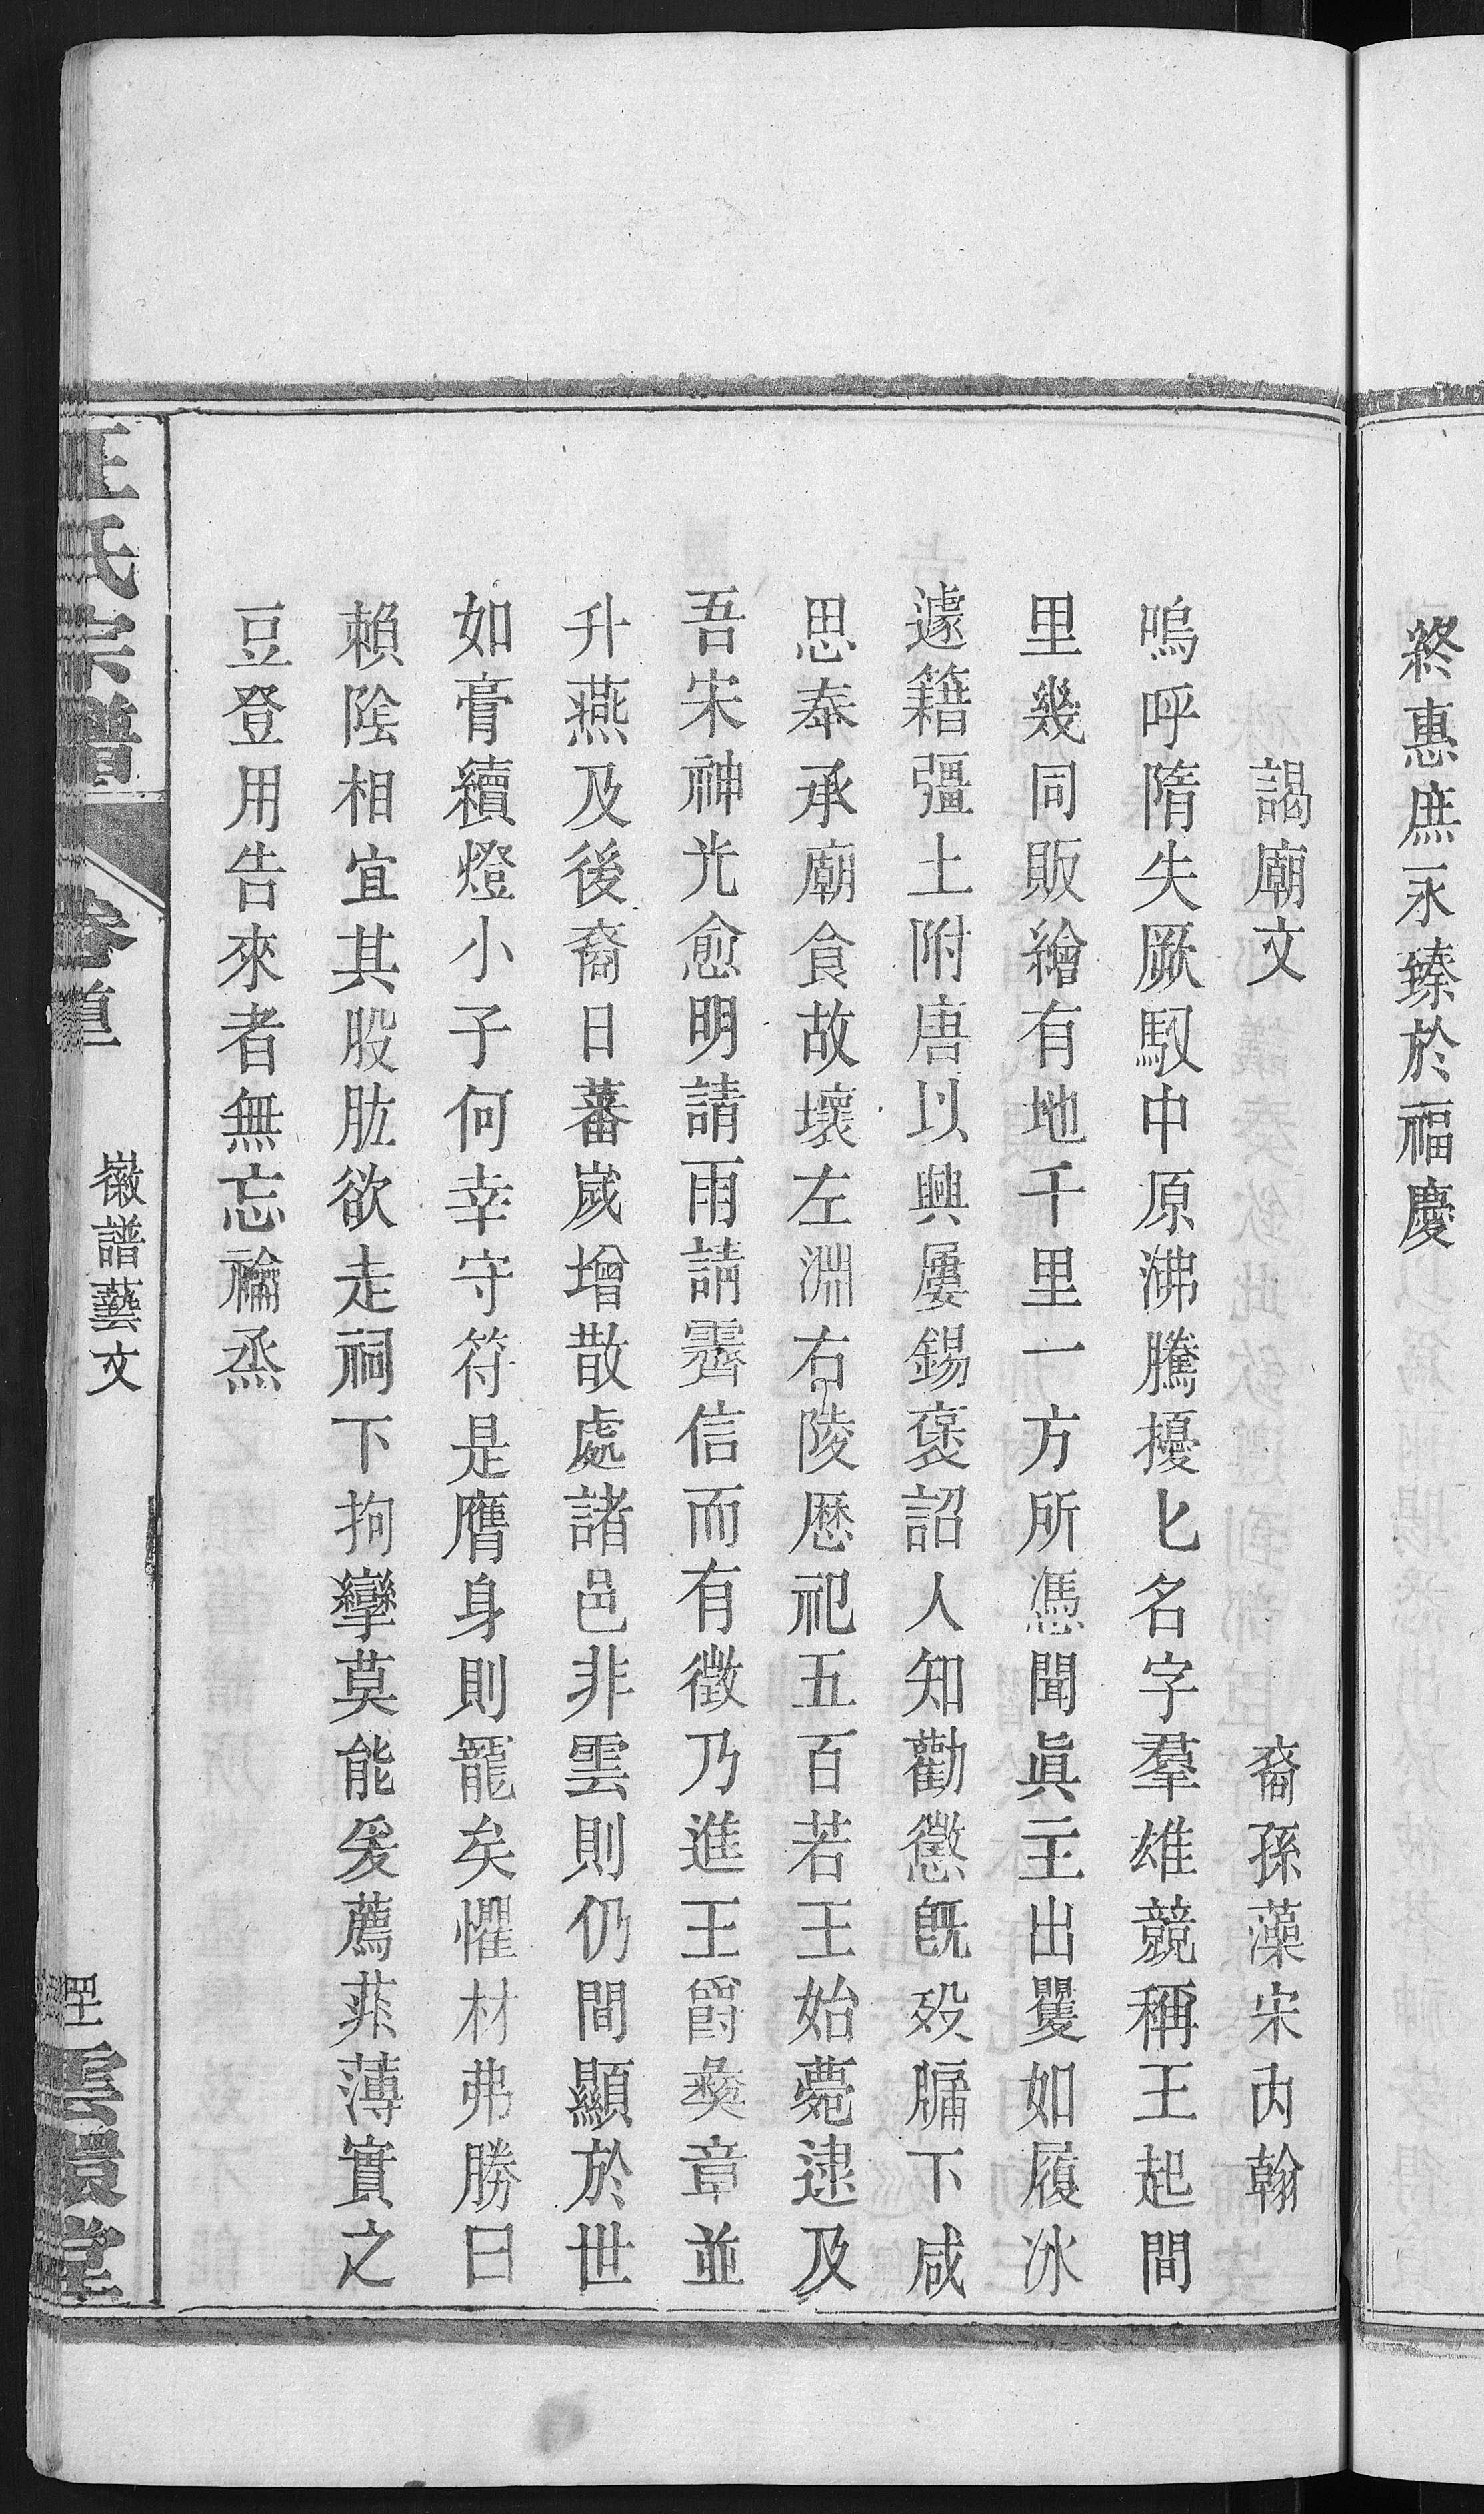 終惠庶永臻於福慶
謁廟文　裔孫藻宋內翰
嗚呼隋失厥馭中原沸騰擾匕名字羣雄競稱王起間
里幾同販繒有地千里一方所憑聞眞主出矍如履冰
遽籍彊土附唐以興屢錫褒詔人知勸懲旣歿牖下咸
思奉承廟食故壤左淵右陵歷祀五百若王始薨逮及
吾宋神光愈明請雨請霽信而有徵乃進王爵彝章並
升燕及後裔日蕃嵗增散處諸邑非雲則仍間顯於世
如膏續燈小子何幸守符是膺身則寵矣懼材弗勝曰
賴陰相宜其股肱欲走祠下拘攣莫能爰薦菲薄實之
豆登用告來者無忘禴烝
汪氏宗譜　卷首　徽譜藝文　雲環堂